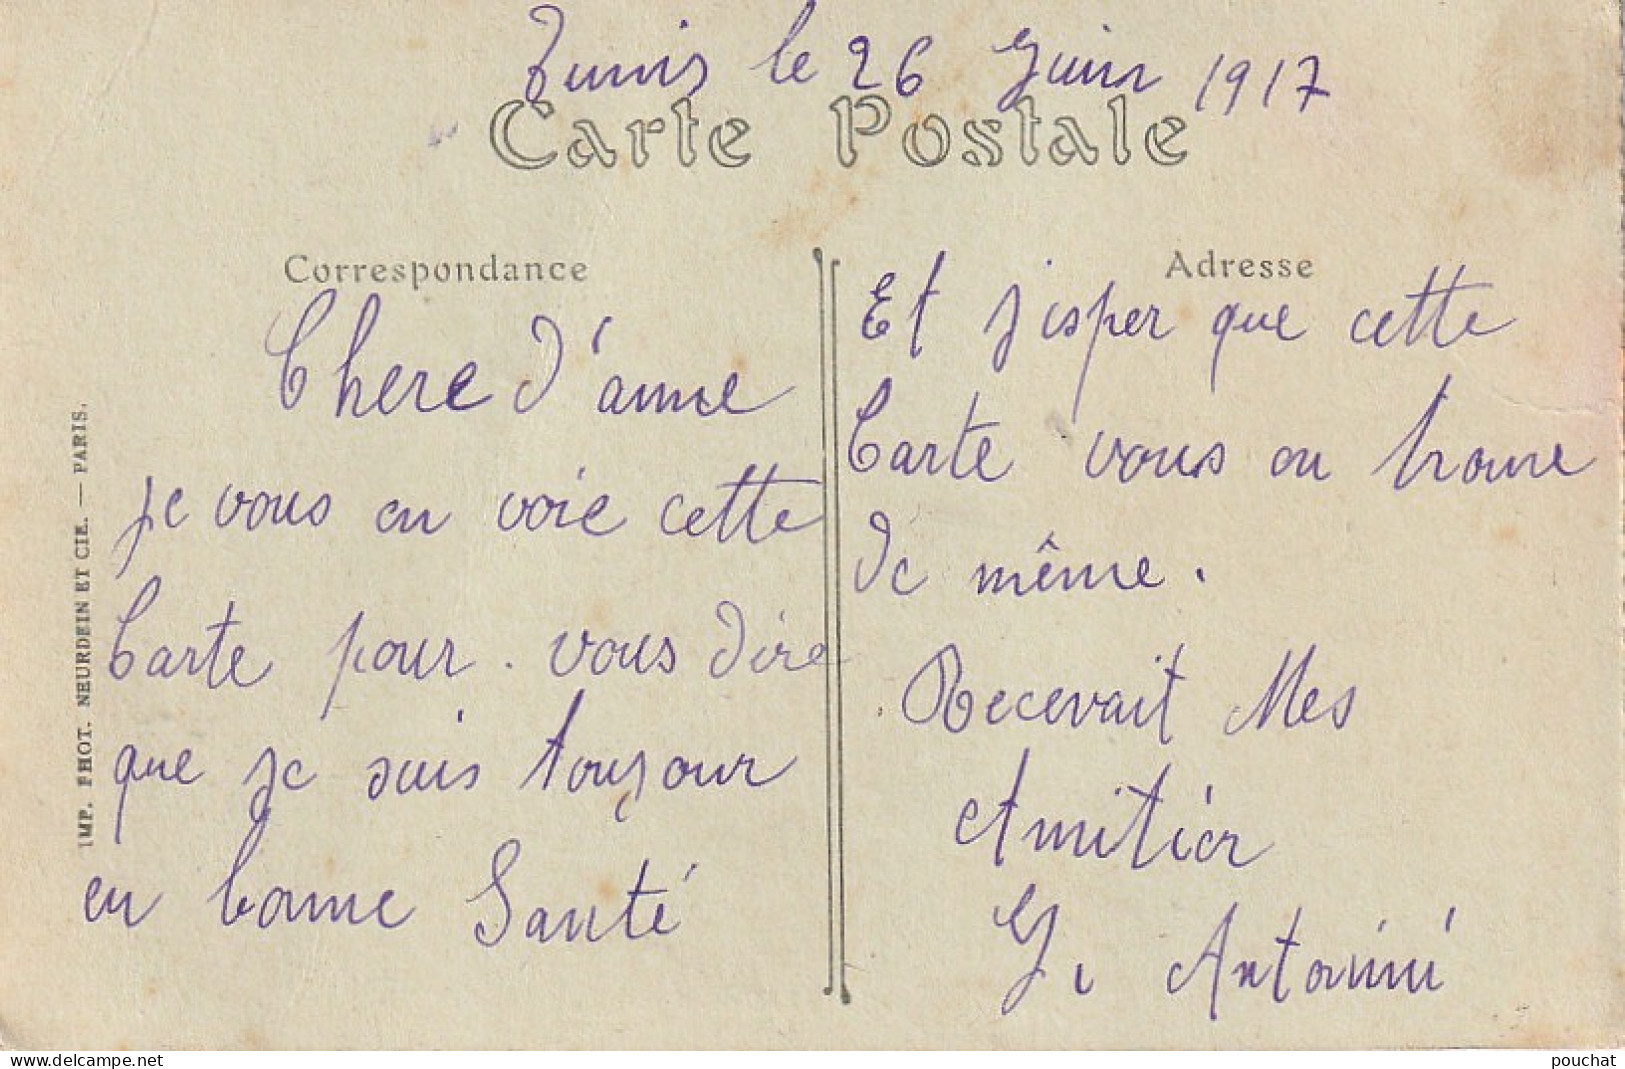 Tunis le 26 Juin 1917
Carte Postale
Correspondance
Chere D'anne
je vous en voie cette
Carte pour. vous dire
que je suis toujour
en bonne Santé
Adresse
Et j'isper que cette
Carte vous en trouve
de même.
Recevait Mes
Amitièr
J. Antonini
IMP. PHOT. NEURDEIN ET CIE. — PARIS.
www.delcampe.net
pouchat